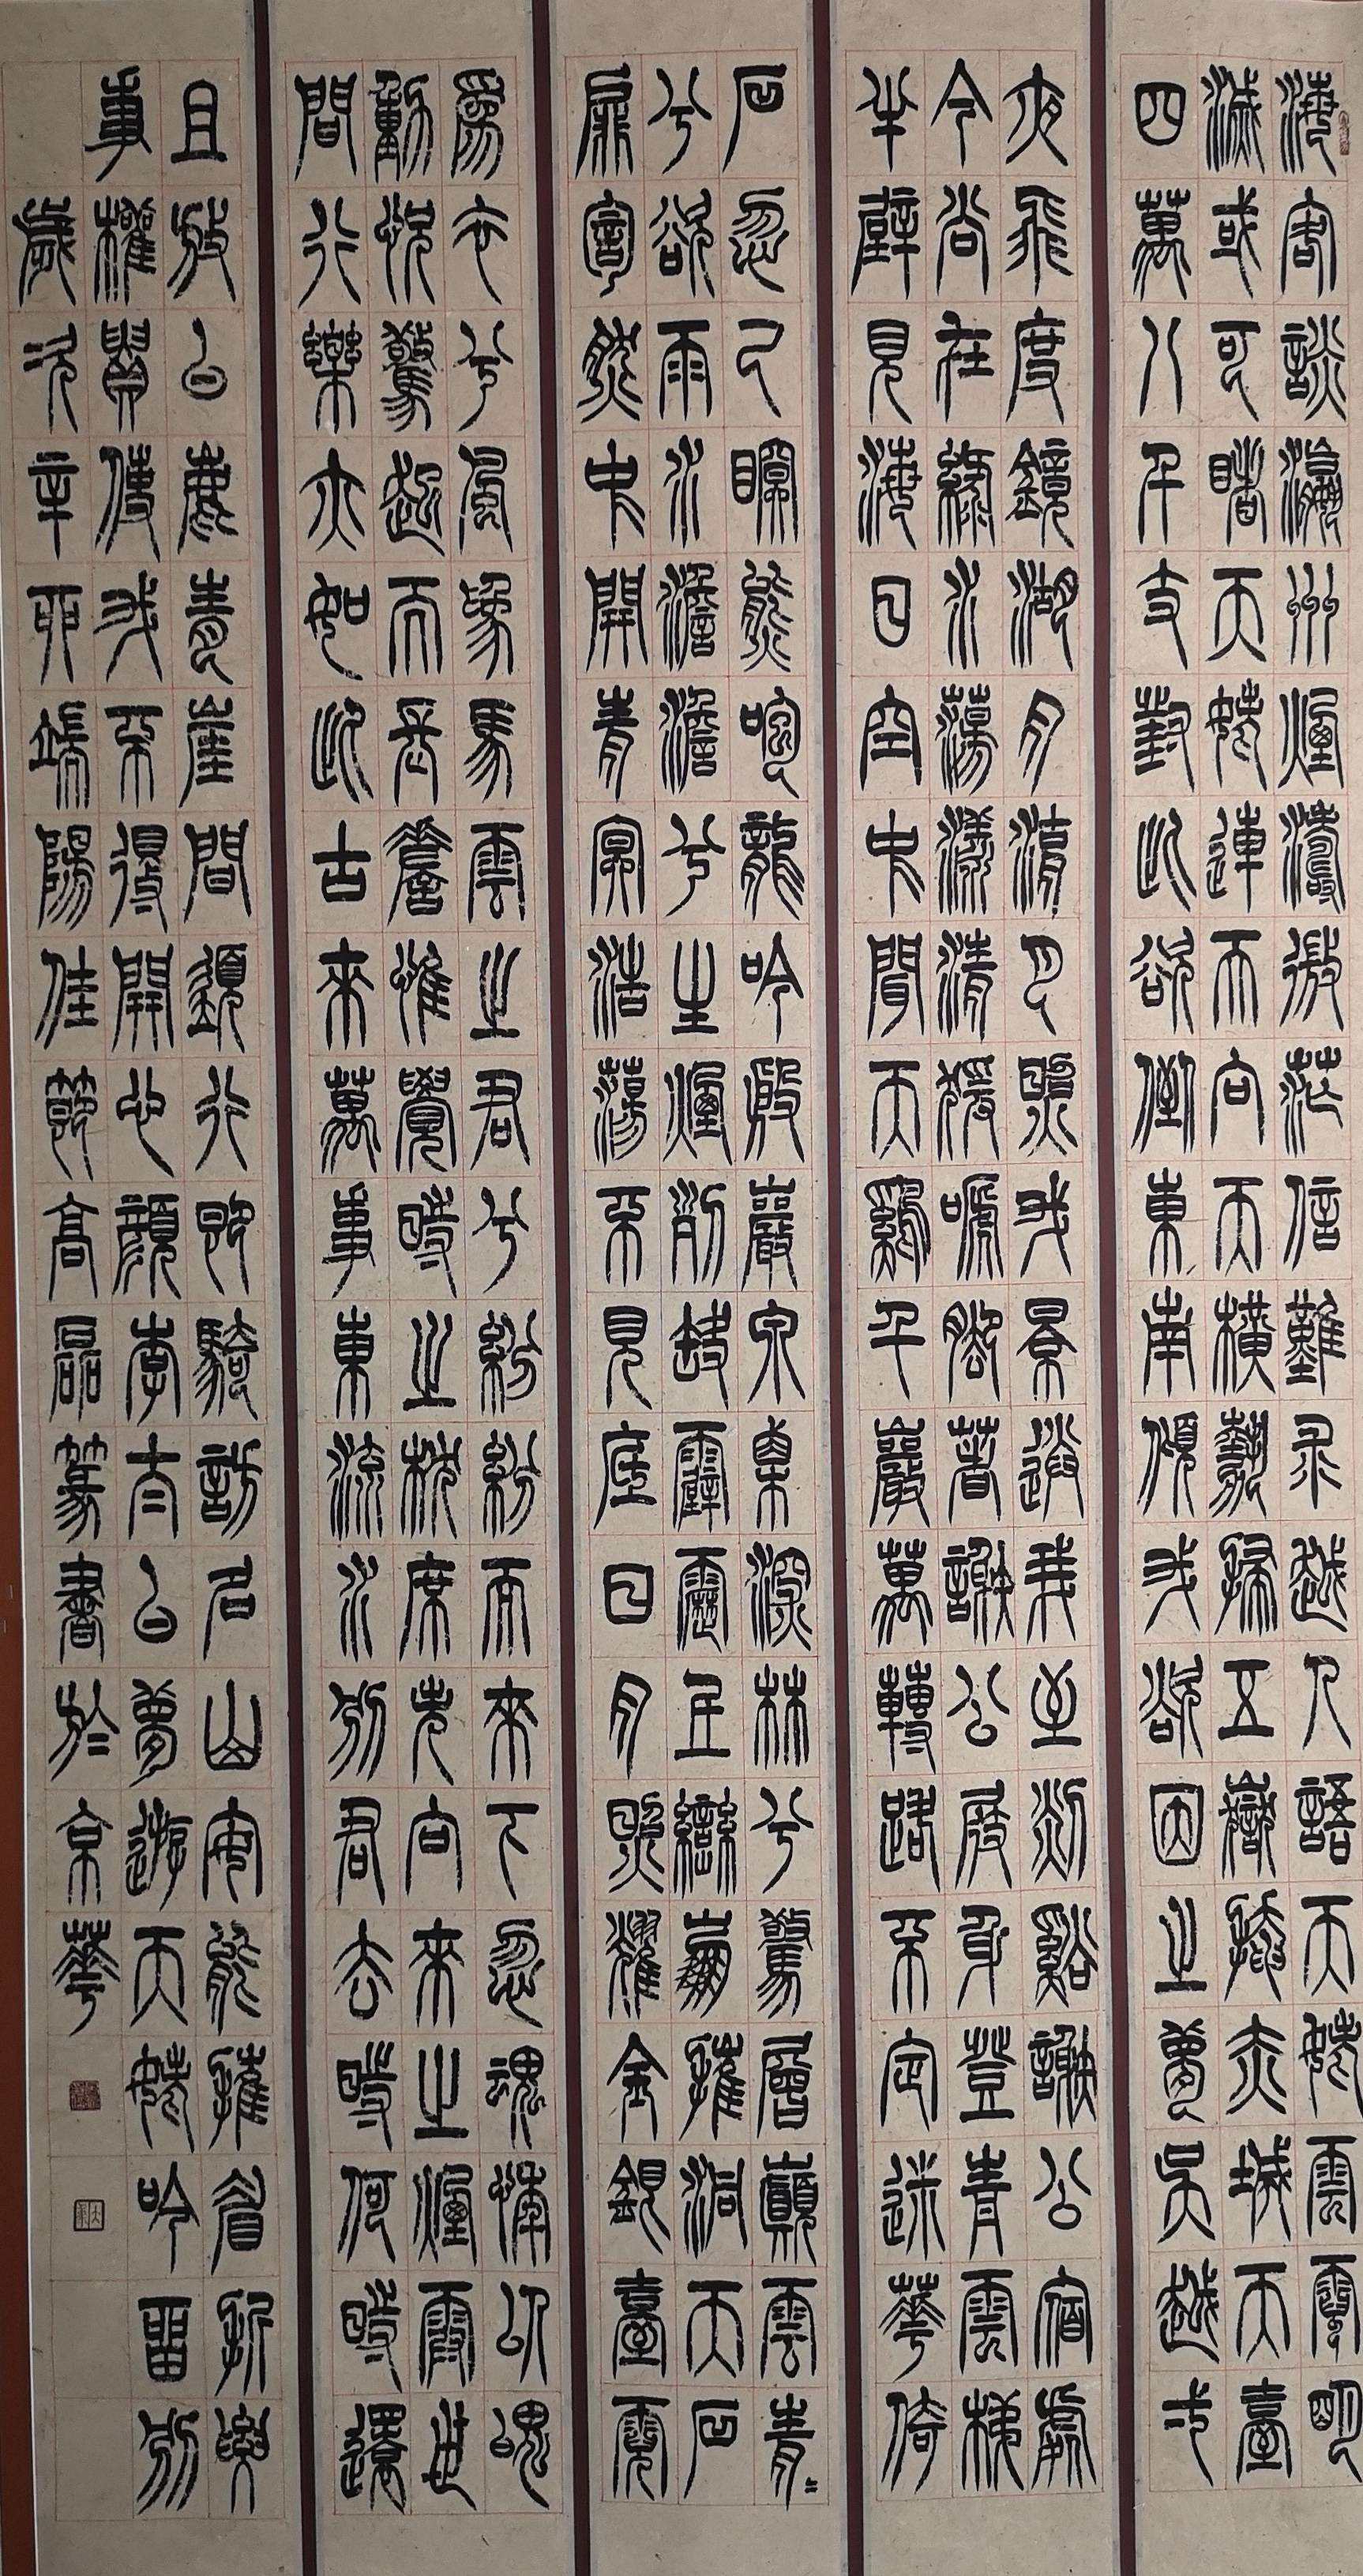 海客談瀛州煙濤微茫信難求越人語天姥雲霓明
滅或可睹天姥連天向天橫勢拔五嶽掩赤城天臺
四萬八千丈對此欲倒東南傾我欲因之夢吳越弌
夜飛度鏡湖月湖月照我景送我至剡谿謝公宿處
今尚在淥水蕩漾清猨嗁腳著謝公屐身登青雲梯
半壁見海日空中聞天雞千巖萬轉路不定迷華倚
石忽已瞑熊咆龍吟殷巖泉栗深林兮驚層巔雲青〻
兮欲雨水澹澹兮生煙列缺霹靂丘巒崩摧洞天石
扉訇然中開青冥浩蕩不見底日月照燿金銀臺霓
爲衣兮風爲馬雲之君兮紛紛而來下忽魂悸以魄
動怳驚起而長嗟惟覺時之枕席失向來之煙霞世
間行樂亦如此古來萬事東流水別君去時何時還
且放白鹿青崖間須行即騎訪名山安能摧眉折腰
事權貴使我不得開心顏李太白夢遊天姥吟留別
歲次辛卯端陽佳節高磊篆書於京華